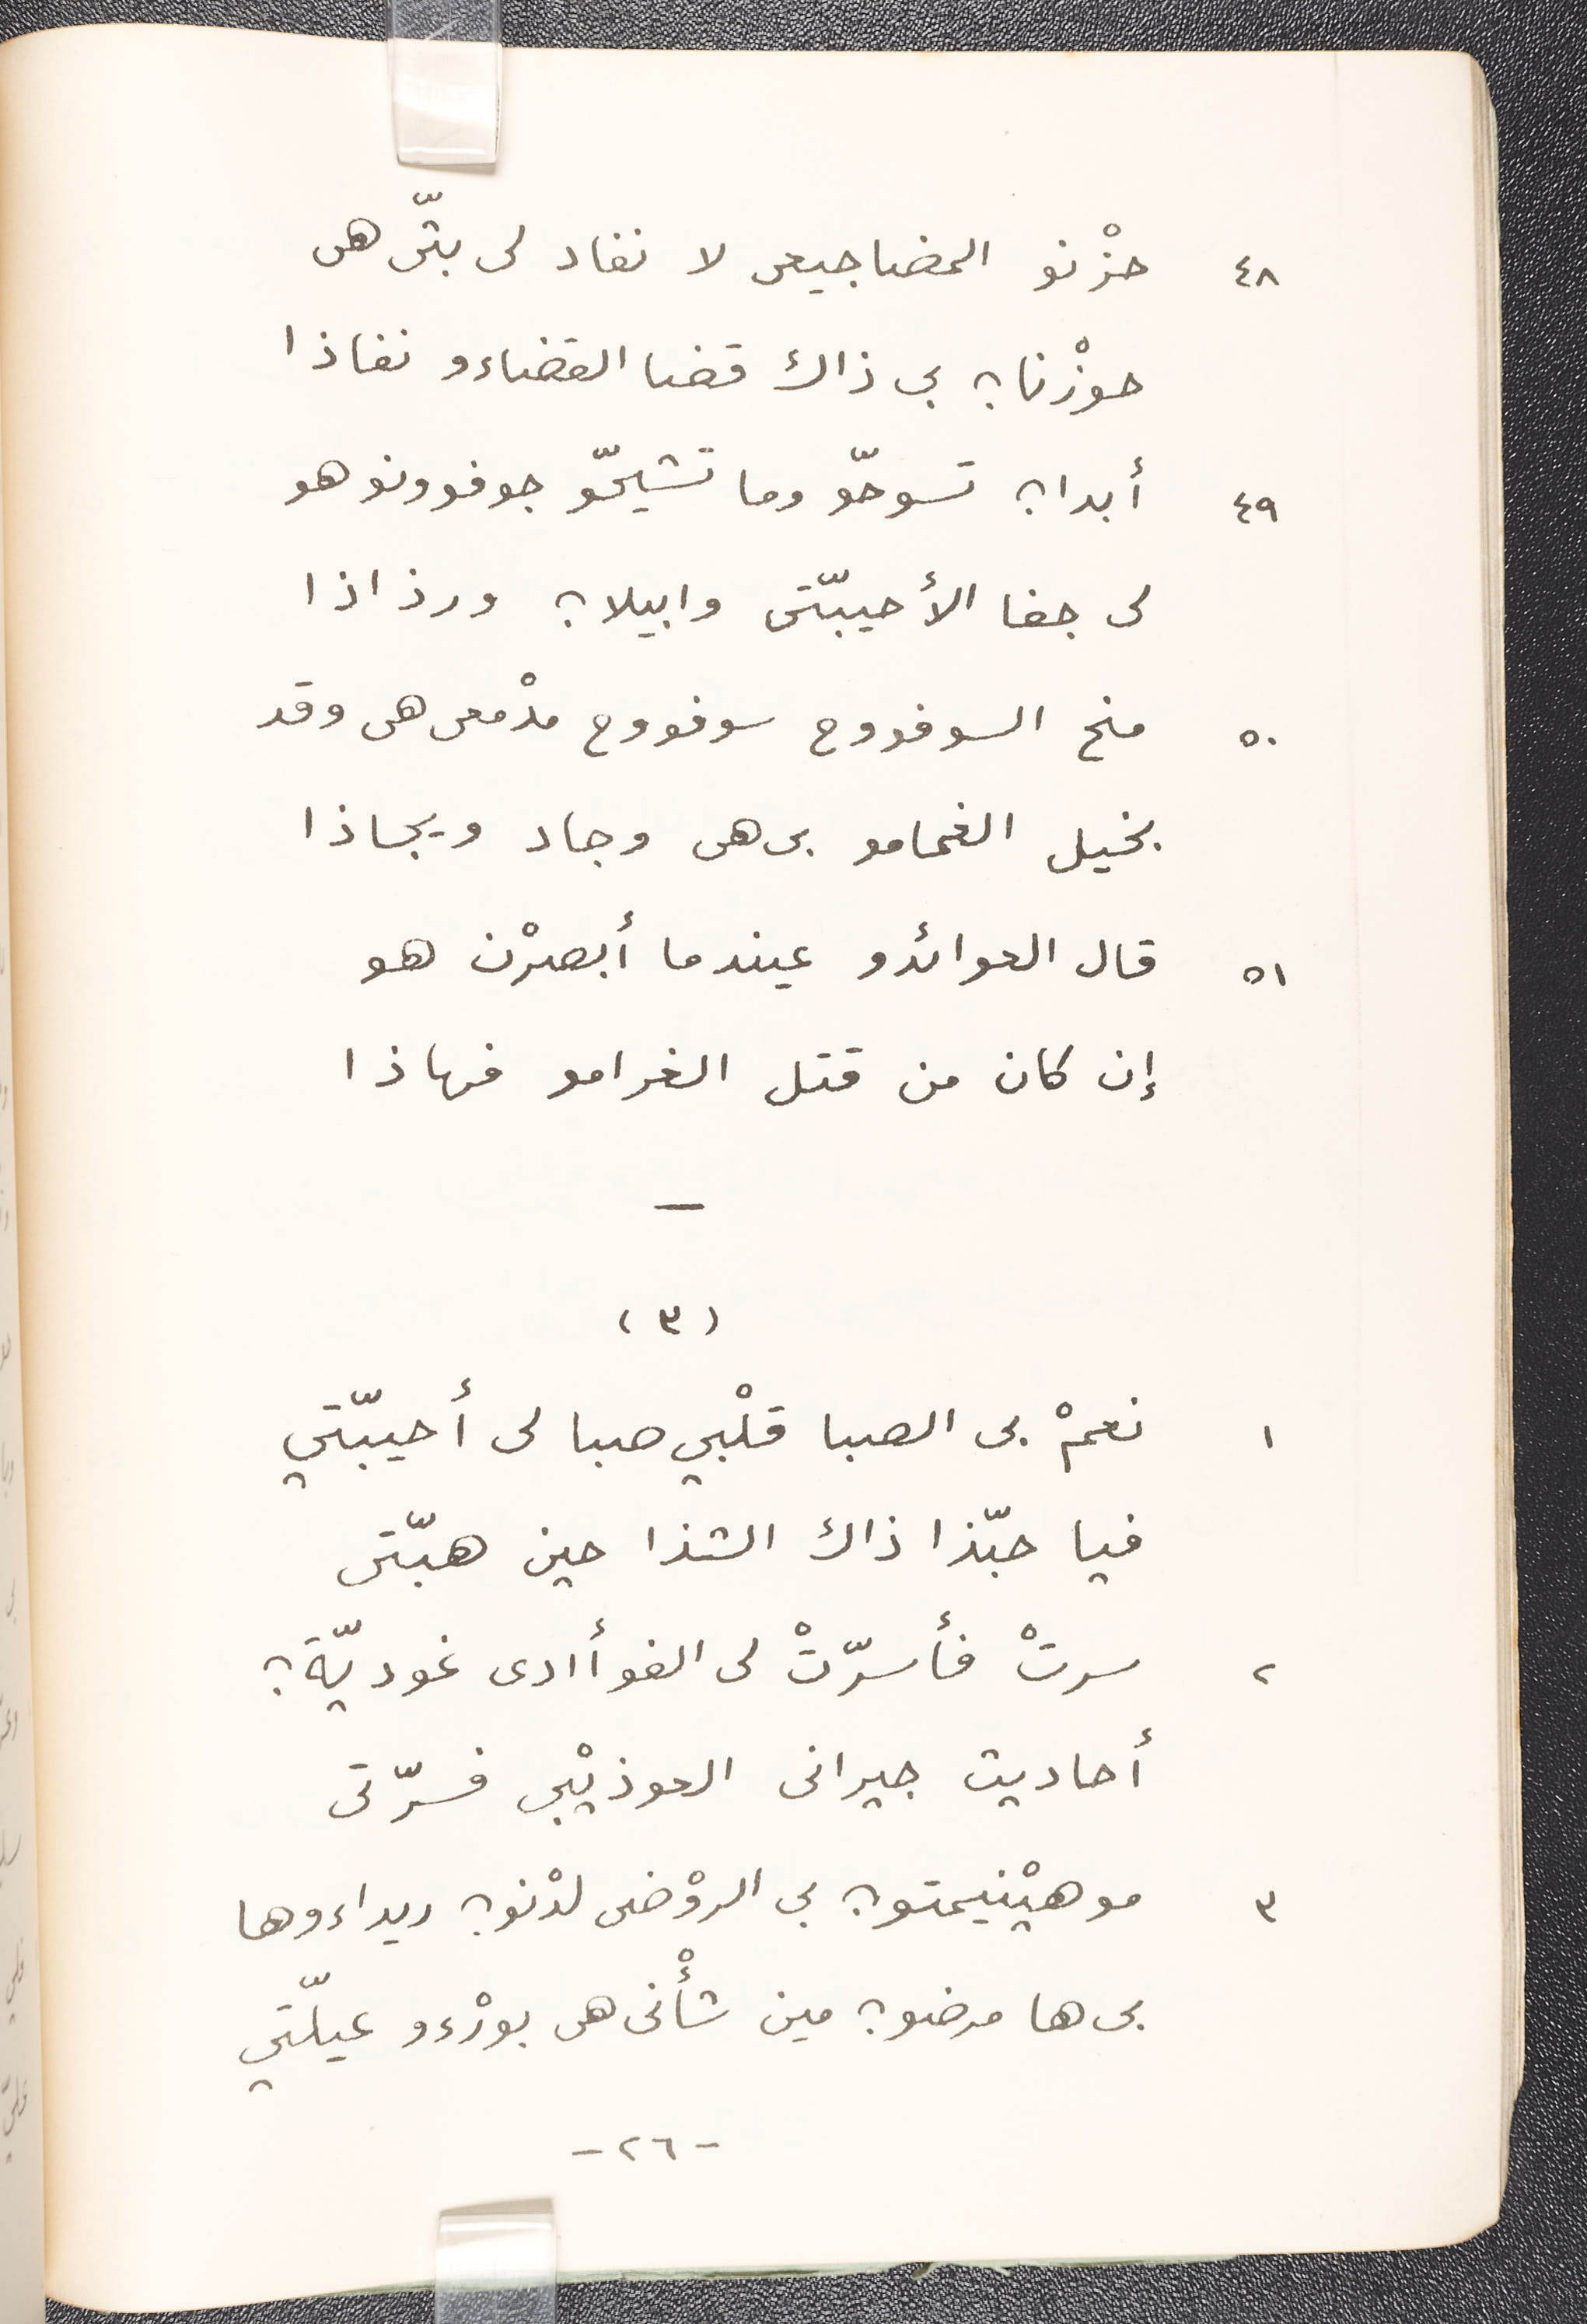 ٤٨ حزْنو المضاجيعى لا نفاد لى بثّى هى
حوزْنا؟ بى ذاك قضا القضاءو نفاذا
٤٩ أبدا؟ تسوحّو وما تشيحّو جوفوونو هو
لى جفا الأحيبّتى وابيلا؟ ورذاذا
٥٠ منح السوفووح سوفووح مدْمعى هى وقد
بخيل الغمامو بى هى وجاد ويجاذا
٥١ قال العوائدو عيندما أبصرْن هو
إن كان من قتل الغرامو فهاذا
—
(٣)
١ نعمْ بى الصبا قلْبي صبا لى أحيبّتي
فيا حبّذا ذاك الشذا حين هبّتى
٢ سرتْ فأسرّتْ لى الفوأادى غوديّة؟
أحاديث جيرانى العوذيْبى فسرّتى
٣ موهيْنيمتو؟ بى الروْضى لدْنو؟ ريداءوها
بى ها مرضو؟ مين شأْنى هى بورْءو عيلّتي
-٢٦-